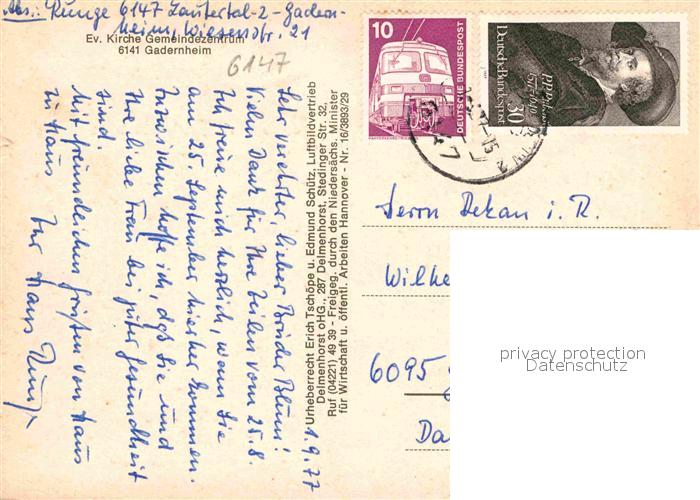 Abs.: Runge 6147 Lautertal-2-Gadern-
heim, Wiesenstr. 21
Ev. Kirche Gemeindezentrum
6141 Gadernheim
6147
1.9.77
Sehr verehrter, lieber Bruder Blum!
Vielen Dank für Ihre Zeilen vom 25.8.
Ich freue mich herzlich, wenn Sie
am 25. September hierher kommen.
Inzwischen hoffe ich, daß Sie und
Ihre liebe Frau bei guter Gesundheit
sind.
Mit freundlichen Grüßen von Haus
zu Haus
Ihr Hans Runge
Urheberrecht Erich Tschöpe u. Edmund Schütz, Luftbildvertrieb
Delmenhorst oHG., 287 Delmenhorst, Stedinger Str. 32,
Ruf (04221) 49 39 - Freigeg. durch den Niedersächs. Minister
für Wirtschaft u. öffentl. Arbeiten Hannover - Nr. 16/3893/29
10
DEUTSCHE BUNDESPOST
P.P. Rubens
1577-1640
30
Deutsche Bundespost
Herrn Dekan i. R.
Wilhe
6095
Da
privacy protection
Datenschutz